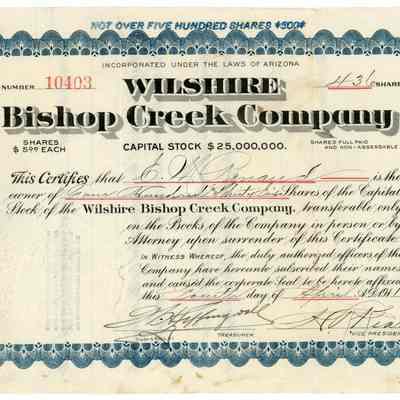 NOT OVER FIVE HUNDRED SHARES $500$
INCORPORATED UNDER THE LAWS OF ARIZONA
NUMBER 10403 WILSHIRE 436 SHARE
Bishop Creek Company
SHARES $5.00 EACH CAPITAL STOCK $25,000,000. SHARES FULL PAID AND NON-ASSESSABLE
This Certifies that E. W. is the
owner of Four Hundred Thirty Six Shares of the Capital
Stock of the Wilshire Bishop Creek Company, transferable only
on the Books of the Company in person or by
Attorney upon surrender of this Certificate
IN WITNESS WHEREOF, the duly authorized officers of the
Company have hereunto subscribed their names
and caused the corporate Seal to be hereto affixed
this day of A.D.
TREASURER VICE PRESIDENT